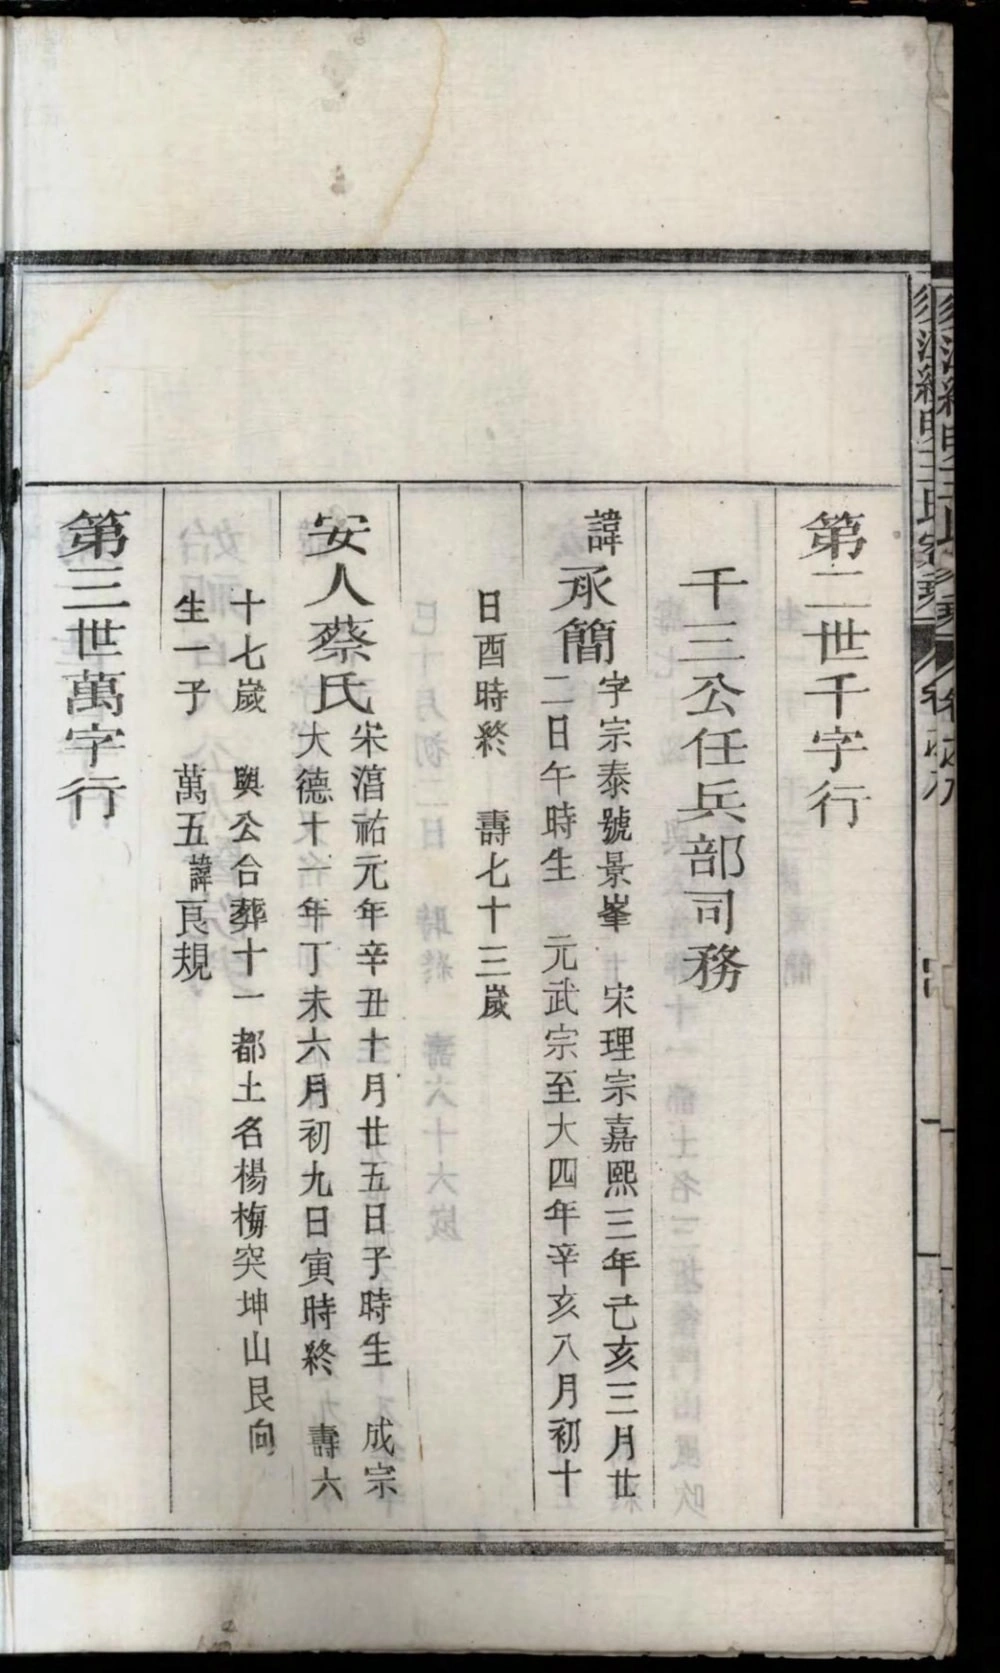 第二世千字行
千三公任兵部司務
諱承簡字宗泰號景峯 宋理宗嘉熙三年己亥三月廿
二日午時生 元武宗至大四年辛亥八月初十
日酉時終 壽七十三歲
安人蔡氏宋淳祐元年辛丑十月廿五日子時生 成宗
大德十一年丁未六月初九日寅時終 壽六
十七歲 與公合葬十一都土名楊梅突坤山艮向
生一子 萬五諱良規
第三世萬字行